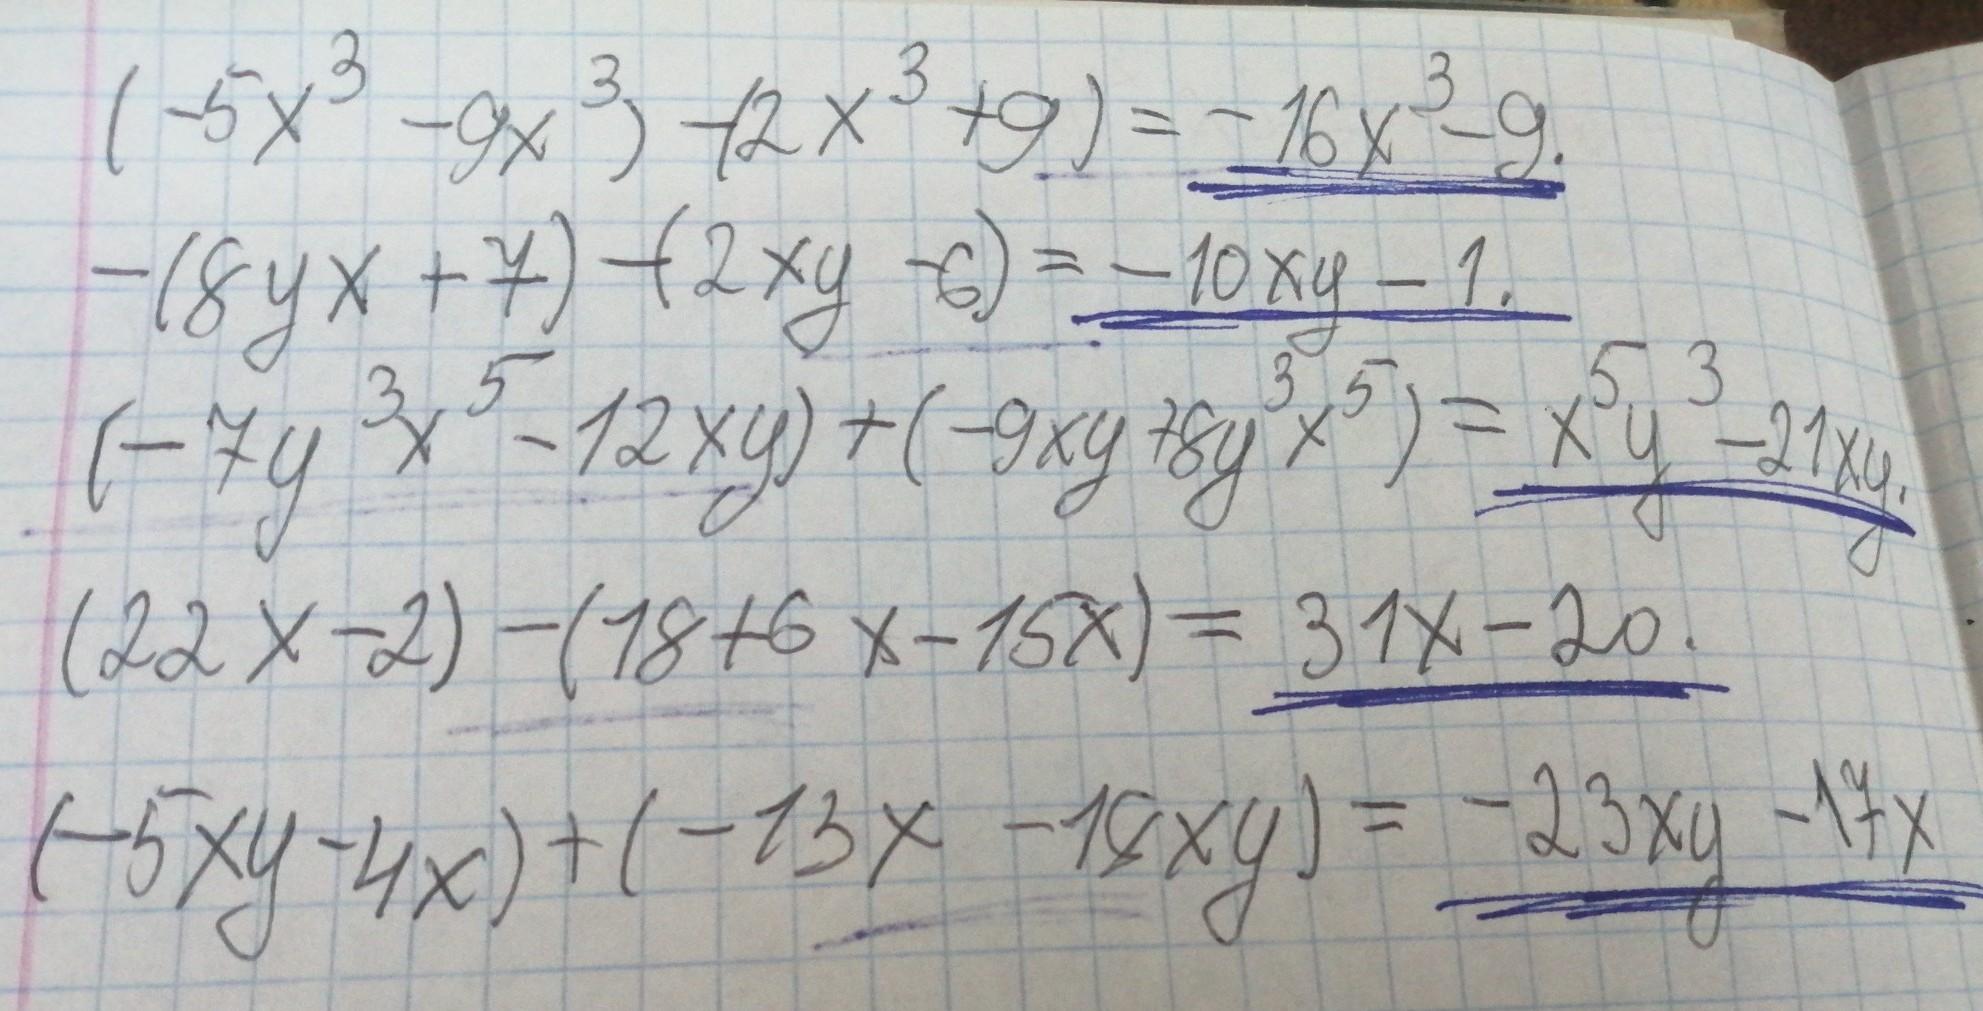 (-5x³ -9x³) -(2x³ +9) = -16x³ -9.
-(8yx +7) -(2xy -6) = -10xy -1.
(-7y³x⁵ -12xy) +(-9xy +8y³x⁵) = x⁵y³ -21xy.
(22x -2) -(18+6x -15x) = 31x -20.
(-5xy -4x) +(-13x -18xy) = -23xy -17x